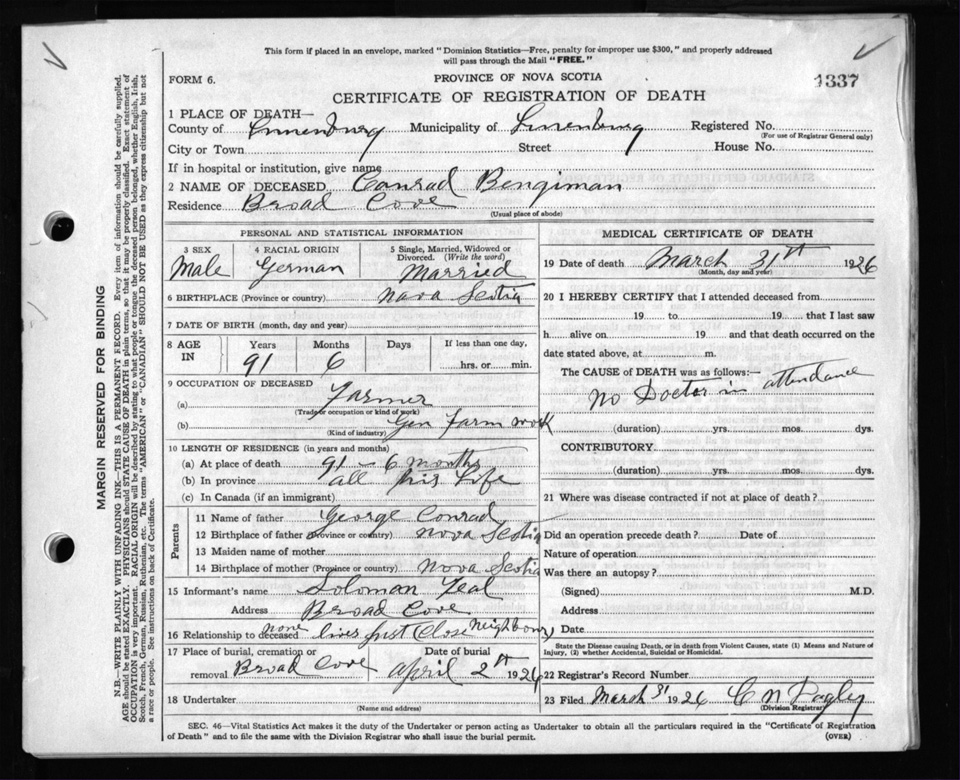 This form if placed in an envelope, marked "Dominion Statistics—Free, penalty for improper use $300," and properly addressed
will pass through the Mail "FREE."
FORM 6.
PROVINCE OF NOVA SCOTIA
1337
CERTIFICATE OF REGISTRATION OF DEATH
1 PLACE OF DEATH—
County of Lunenburg Municipality of Lunenburg Registered No.
(For use of Registrar General only)
City or Town Street House No.
If in hospital or institution, give name
2 NAME OF DECEASED Conrad Bengiman
Residence Broad Cove
(Usual place of abode)
PERSONAL AND STATISTICAL INFORMATION
3 SEX 4 RACIAL ORIGIN 5 Single, Married, Widowed or
Divorced. (Write the word)
Male German Married
6 BIRTHPLACE (Province or country) Nova Scotia
7 DATE OF BIRTH (month, day and year)
8 AGE IN Years Months Days If less than one day,
91 6 hrs. or min.
9 OCCUPATION OF DECEASED
(a) Farmer
(Trade or occupation or kind of work)
(b) Gen Farm work
(Kind of industry)
10 LENGTH OF RESIDENCE (in years and months)
(a) At place of death 91 - 6 months
(b) In province all his Life
(c) In Canada (if an immigrant)
Parents
11 Name of father George Conrad
12 Birthplace of father (Province or country) Nova Scotia
13 Maiden name of mother
14 Birthplace of mother (Province or country) Nova Scotia
15 Informant's name Soloman Teal
Address Broad Cove
16 Relationship to deceased none lives just Close Neighbour
17 Place of burial, cremation or
removal Broad Cove
Date of burial
April 2nd 1926
18 Undertaker
(Name and address)
MEDICAL CERTIFICATE OF DEATH
19 Date of death March 31st 1926
(Month, day and year)
20 I HEREBY CERTIFY that I attended deceased from
19 to 19 that I last saw
h alive on 19 and that death occurred on
date stated above, at m.
The CAUSE of DEATH was as follows:—
No Doctor in attendance
(duration) yrs. mos. dys.
CONTRIBUTORY
(duration) yrs. mos. dys.
21 Where was disease contracted if not at place of death?
Did an operation precede death? Date of
Nature of operation
Was there an autopsy?
(Signed) M.D.
Address
Date
State the Disease causing Death, or in death from Violent Causes, state (1) Means and Nature of
Injury, (2) whether Accidental, Suicidal or Homicidal.
22 Registrar's Record Number
23 Filed March 31 1926 C N
(Division Registrar)
SEC. 46—Vital Statistics Act makes it the duty of the Undertaker or person acting as Undertaker to obtain all the particulars required in the "Certificate of Registration
of Death" and to file the same with the Division Registrar who shall issue the burial permit. (OVER)
MARGIN RESERVED FOR BINDING
N.B.—WRITE PLAINLY WITH UNFADING INK—THIS IS A PERMANENT RECORD. Every item of information should be carefully supplied.
AGE should be stated EXACTLY. PHYSICIANS should STATE CAUSE OF DEATH in plain terms, so that it may be properly classified. Exact statement of
OCCUPATION is very important. RACIAL ORIGIN will be described by stating to what people or tongue the deceased person belonged, whether English, Irish,
Scotch, French, German, Russian, Ruthenian, etc. The terms "AMERICAN" or "CANADIAN" SHOULD NOT BE USED as they express citizenship but not
a race or people. See instructions on back of Certificate.